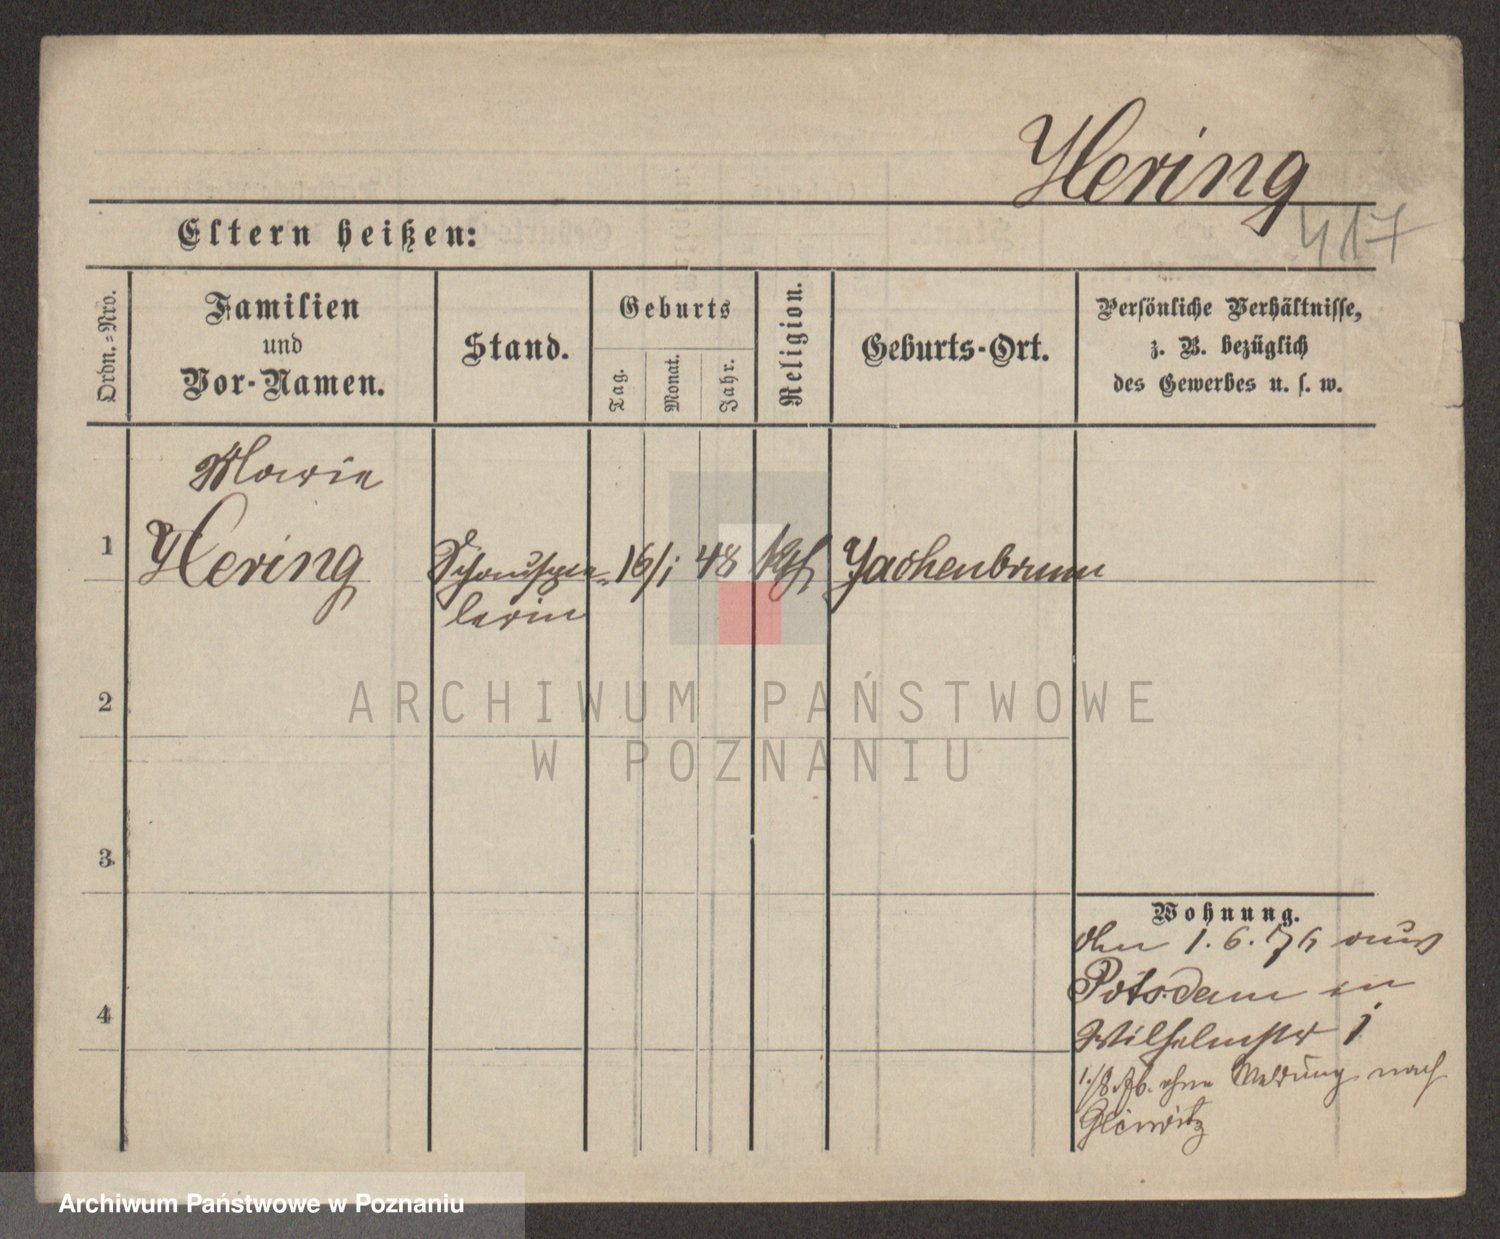 Hering
417
Eltern heißen:
Ordn.-Nro.
Familien
und
Vor-Namen.
Stand.
Geburts
Tag.
Monat.
Jahr.
Religion.
Geburts-Ort.
Persönliche Verhältnisse,
z. B. bezüglich
des Gewerbes u. s. w.
Marie
1 Hering Schauspie- 16/1 48 kth
lerin
2
3
4
Wohnung.
1.6.76 aus
Potsdam in
Wilhelmstr 1
1./8.76. ohne Meldung nach
Gleiwitz
ARCHIWUM PAŃSTWOWE
W POZNANIU
Archiwum Państwowe w Poznaniu